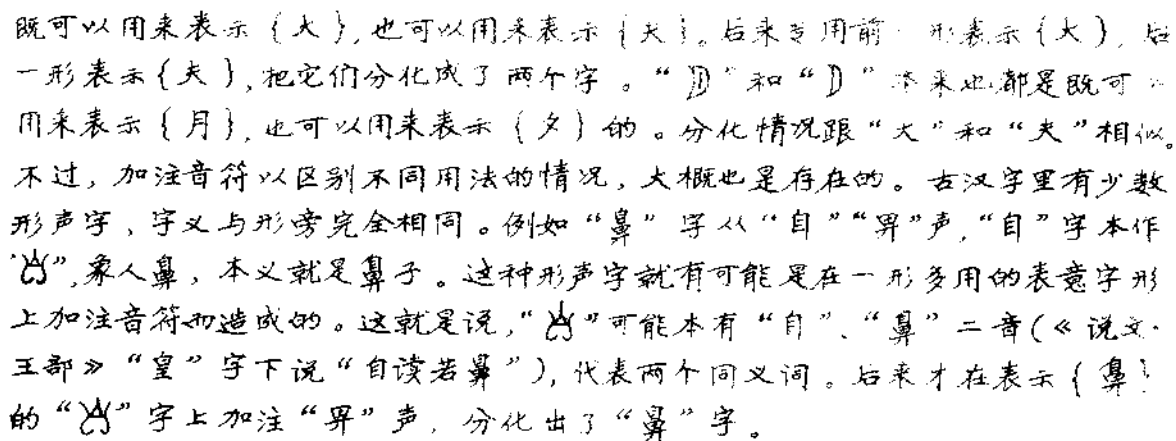 既可以用来表示{大},也可以用来表示{夫}。后来专用前一形表示{大},后
一形表示{夫},把它们分化成了两个字。“”和“”本来也都是既可以
用来表示{月},也可以用来表示{夕}的。分化情况跟“大”和“夫”相似。
不过,加注音符以区别不同用法的情况,大概也是存在的。古汉字里有少数
形声字,字义与形旁完全相同。例如“鼻”字从“自”“畀”声,“自”字本作
“”,象人鼻,本义就是鼻子。这种形声字就有可能是在一形多用的表意字形
上加注音符而造成的。这就是说,“”可能本有“自”、“鼻”二音(《说文·
王部》“皇”字下说“自读若鼻”),代表两个同义词。后来才在表示{鼻}
的“”字上加注“畀”声,分化出了“鼻”字。